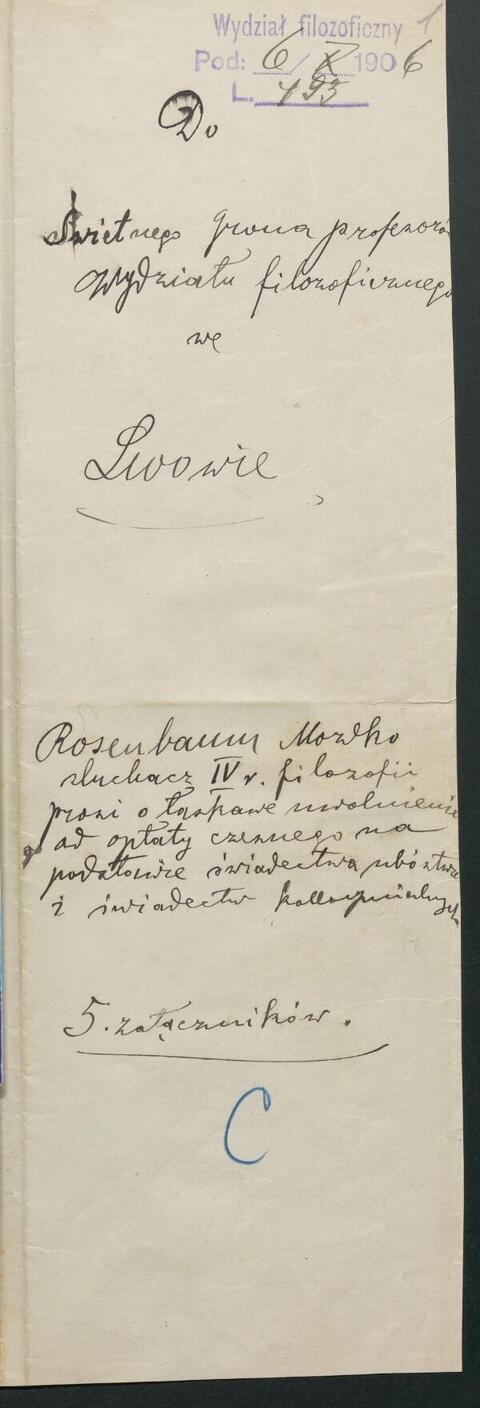 Wydział filozoficzny 1
Pod: 6/X 1906
L. 193
Do
Świetnego Grona profesorów
Wydziału filozoficznego
we
Lwowie
Rosenbaum Moszko
słuchacz IV r. filozofii
prosi o łaskawe uwolnienie
go od opłaty czesnego na
podstawie świadectwa ubóstwa
i świadectw kollokwialnych
5. załączników.
C